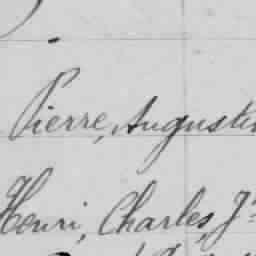 Pierre, Augustin
Henri, Charles, J